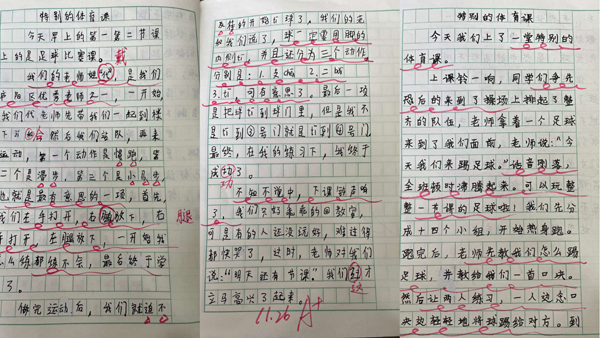 特别的体育课
今天早上的第一第二节课
上的是足球比赛课。
戴
我们的老师姓代,是我们
最优秀老师之一,一开始,
我们代老师先带我们一起到楼
下 会然后我们站队,再来
运动,第一个动作是慢跑,第
二个是滑步,第三个是小是步
也就是最有意思的一项,首先,
我们左手打开,右脑放下,右
腿
手打开,左脑放下,一开始我
怎么练都练不会,最后终于学
了。
做完运动后,我们就迫不
及待的开始踢球了,我们的老
师和我们说了,球一定要用脚的
内侧踢,并且还分为三个动作,
分别是:1.支撑 2.二摆
3.踢,可有意思了。最后一项
是把球踢到球门里,但是我不
是踢到①号门就是踢到④号门,
最终,在我的练习下,我终于
成动了。
功
不知不觉中,下课铃声响
了,我们只好乖乖的回教室,
可是有的人还没玩好,难过得
都快哭了,这时,老师对我们
说:“明天还有节课。”我们到才
这
立马高兴了起来。
11.26 A+
特别的体育课
今天我们上了一堂特别的
体育课。
上课铃一响,同学们争先
恐后的来到了操场上排起了整
齐的队伍,老师拿着一个足球
来到了我们面前,老师说:“今
天我们来踢足球。”话音刚落,
全班顿时沸腾起来。可以玩整
整一节课的足球啦!我们先分
成十四个小组,开始热身跑。
跑完后,老师先教我们怎么踢
足球,并教给我们一首口决。
然后让两人练习,一人边念口
决边轻轻地将球踢给对方。到